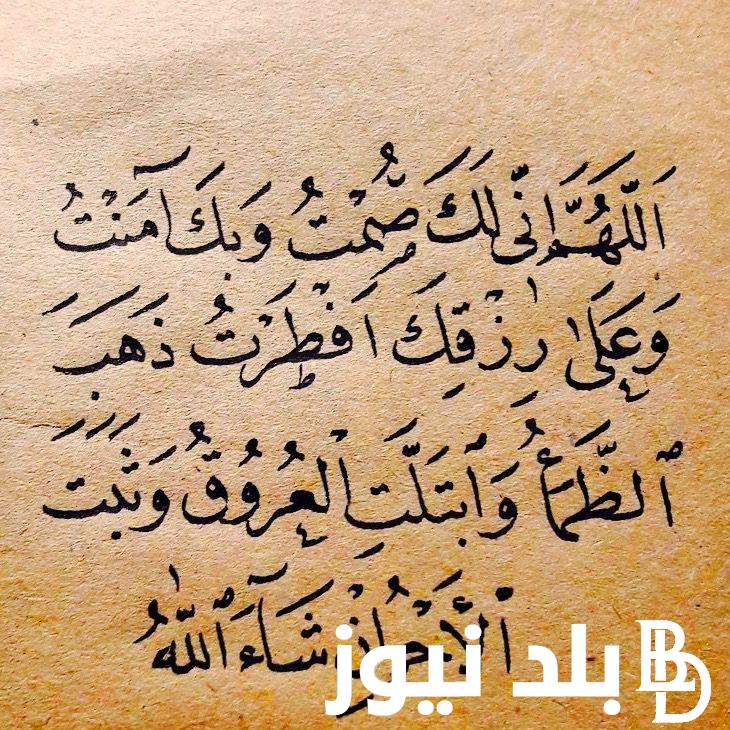 اَللَّهُمَّ اِنِّى لَكَ صُمْتُ وَبِكَ آمَنْتُ
وَعَلَى رِزْقِكَ اَفْطَرْتُ ذَهَبَ
ٱلظَّمَأُ وَٱبْتَلَّتِ الْعُرُوقُ وَثَبَتَ
ٱلْأَجْرُ اِنْ شَآءَ ٱللّٰهُ
بلد نيوز BD